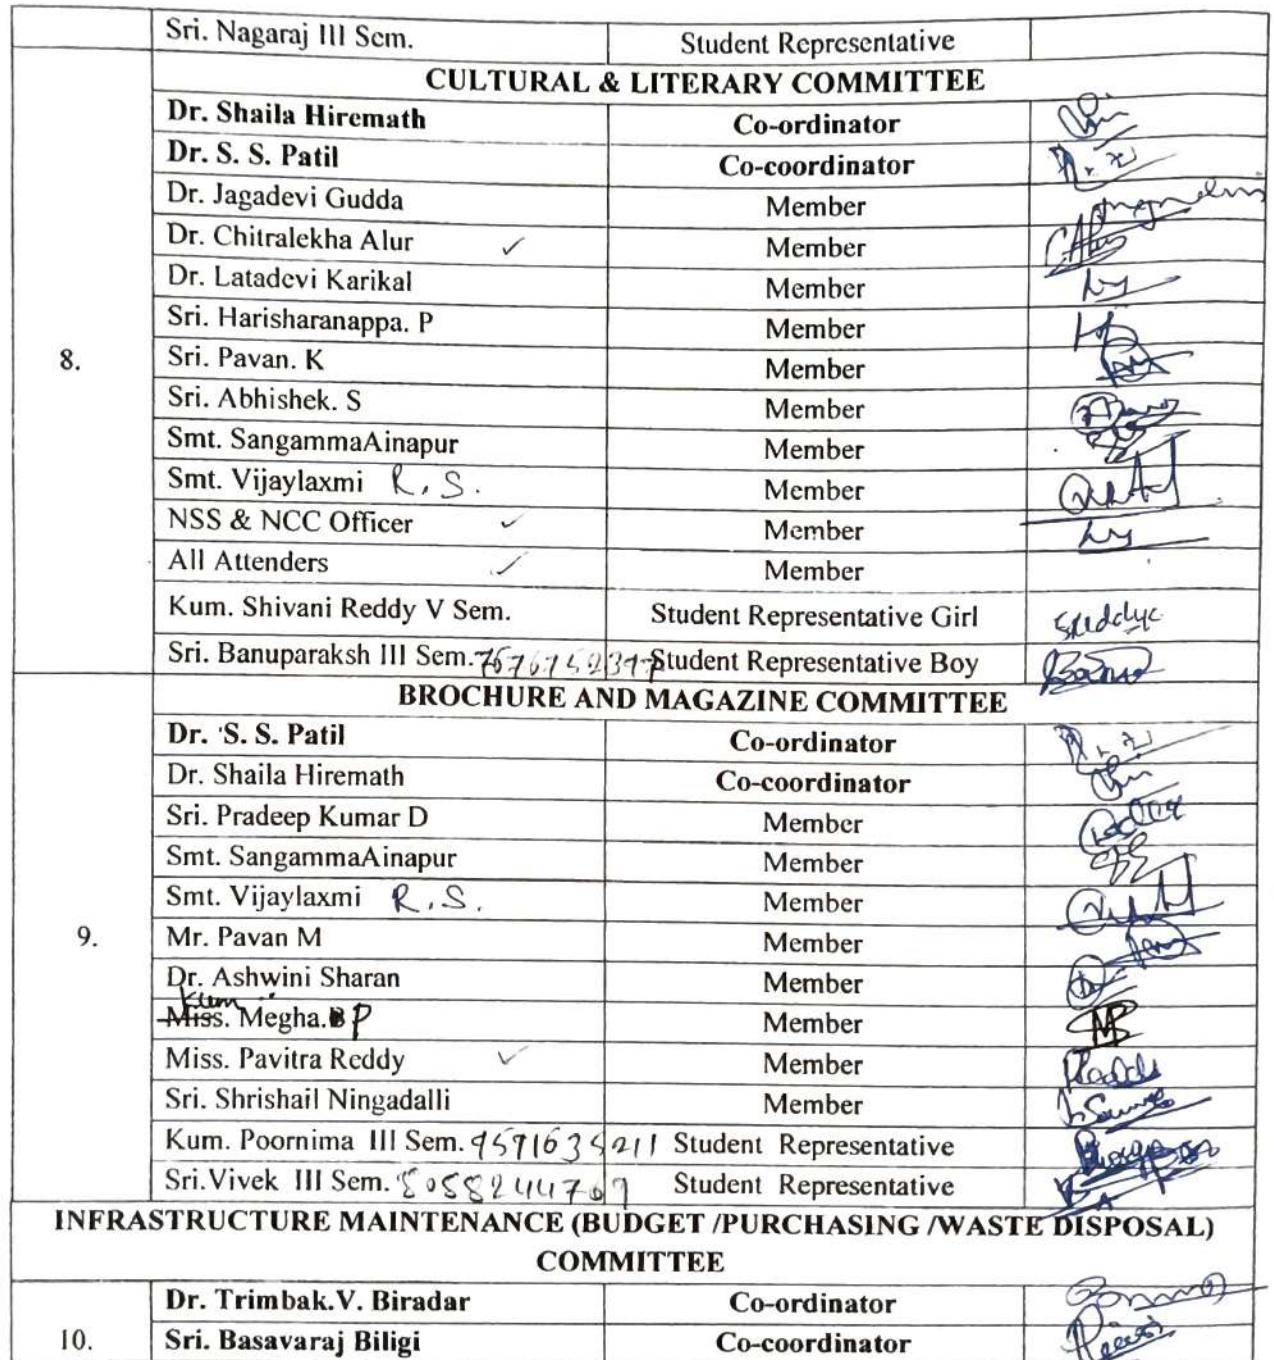 Sri. Nagaraj III Sem. Student Representative
CULTURAL & LITERARY COMMITTEE
Dr. Shaila Hiremath Co-ordinator
Dr. S. S. Patil Co-coordinator
Dr. Jagadevi Gudda Member
Dr. Chitralekha Alur ✓ Member
Dr. Latadevi Karikal Member
Sri. Harisharanappa. P Member
8. Sri. Pavan. K Member
Sri. Abhishek. S Member
Smt. SangammaAinapur Member
Smt. Vijaylaxmi R.S. Member
NSS & NCC Officer ✓ Member
All Attenders ✓ Member
Kum. Shivani Reddy V Sem. Student Representative Girl
Sri. Banuparaksh III Sem. Student Representative Boy
BROCHURE AND MAGAZINE COMMITTEE
Dr. S. S. Patil Co-ordinator
Dr. Shaila Hiremath Co-coordinator
Sri. Pradeep Kumar D Member
Smt. SangammaAinapur Member
Smt. Vijaylaxmi R.S. Member
9. Mr. Pavan M Member
Dr. Ashwini Sharan Member
Kum
Miss. Megha. P Member
Miss. Pavitra Reddy ✓ Member
Sri. Shrishail Ningadalli Member
Kum. Poornima III Sem. Student Representative
Sri.Vivek III Sem. Student Representative
INFRASTRUCTURE MAINTENANCE (BUDGET /PURCHASING /WASTE DISPOSAL)
COMMITTEE
Dr. Trimbak.V. Biradar Co-ordinator
10. Sri. Basavaraj Biligi Co-coordinator